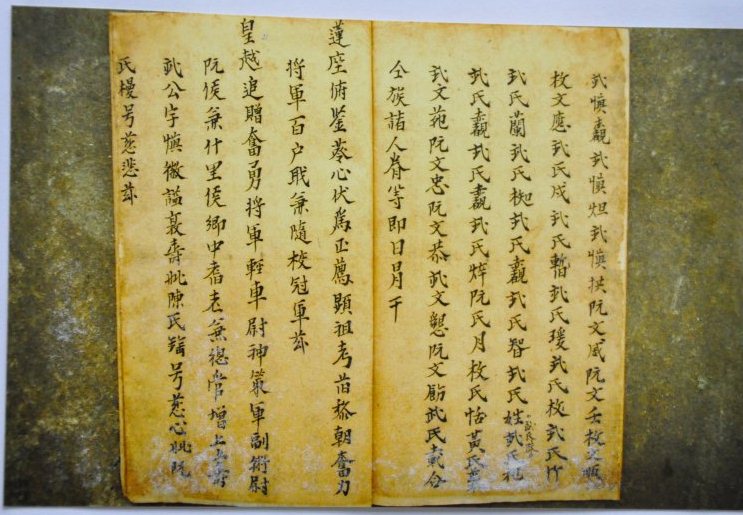 武慎觀武慎炟武慎拱阮文威阮文壬枚文
枚文應武氏戍武氏暫武氏瑗武氏枚武氏竹
武氏蘭武氏枷武氏觀武氏智武氏姓武氏
武氏觀武氏觀武氏煒阮氏月枚氏恬黃氏
武文苑阮文忠阮文恭武文懇阮文勵武氏載合
仝族諸人眷等即日冐干
蓮座俯鉴蓉心伏爲正薦顯祖考前黎朝奮力
將軍百户戝兼隨校冠軍茲
皇越追贈奮勇將軍輊車尉神策軍副衛尉
阮侯兼什里侯鄉中耆老兼總常增上壽
武公字慎徽謚襄壽妣陳氏號慈心妣阮
氏槾号慈悲茲